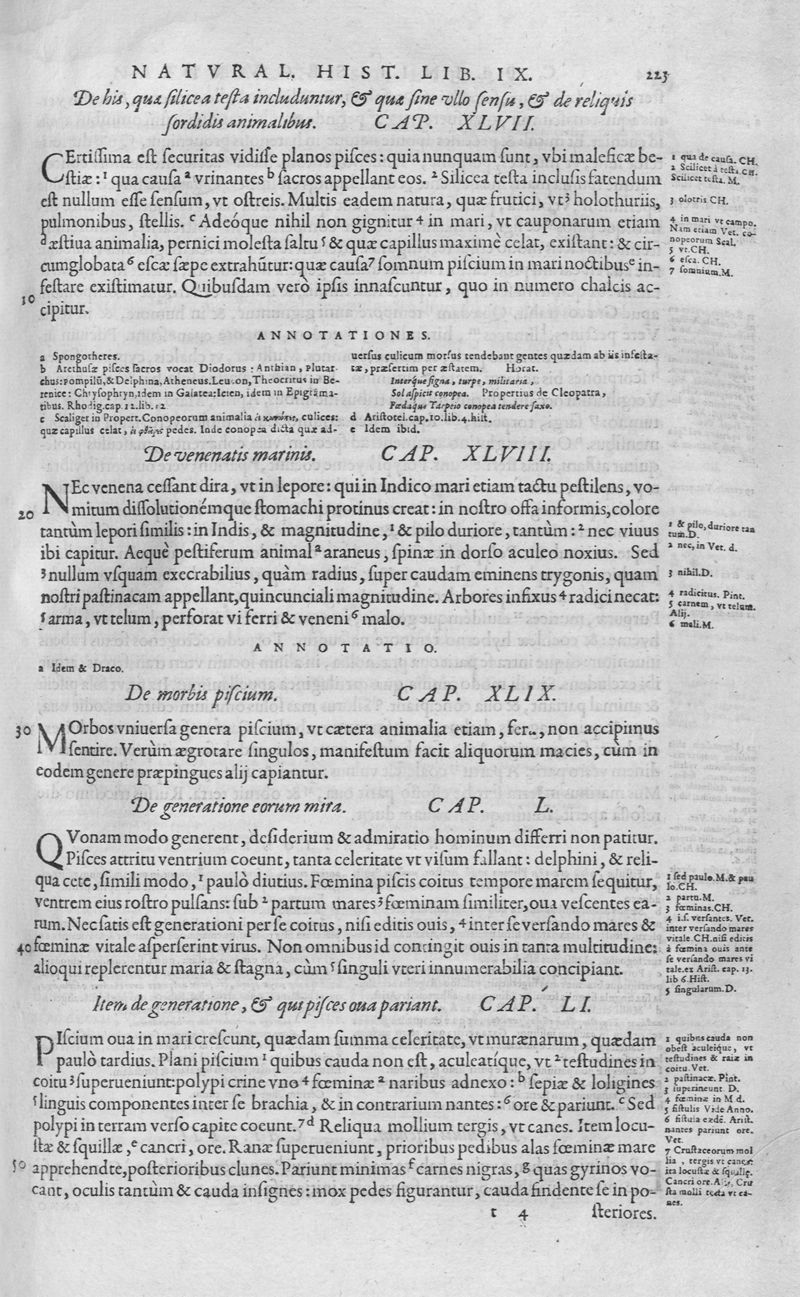 NATVRAL. HIST. LIB. IX. 223
De his, quæ silicea testa includuntur, & quæ sine vllo sensu, & de reliquis
sordidis animalibus. CAP. XLVII.
CErtissima est securitas vidisse planos pisces: quia nunquam sunt, vbi maleficæ be-
stiæ: ¹ qua causa ² vrinantes ᵇ sacros appellant eos. ² Silicea testa inclusis fatendum
est nullum esse sensum, vt ostreis. Multis eadem natura, quæ frutici, vt ³ holothuriis,
pulmonibus, stellis. ᶜ Adeóque nihil non gignitur ⁴ in mari, vt cauponarum etiam
ᵈ æstiua animalia, pernici molesta saltu ⁵ & quæ capillus maximè celat, existant: & cir-
cumglobata ⁶ escæ sæpe extrahūtur: quæ causa ⁷ somnum piscium in mari noctibus ᵉ in-
festare existimatur. Quibusdam verò ipsis innascuntur, quo in numero chalcis ac-
10
cipitur.
1 qua de causa. CH.
2 Scilicet à testa CH.
Scilicet testa. M.
3 olotris CH.
4 in mari vt campo.
Nam etiam Vet. co-
nopeorum Scal.
5 vt. CH.
6 esca. CH.
7 somnium. M.
ANNOTATIONES.
a Spongotheres.
b Arethusæ pisces sacros vocat Diodorus: Anthian, Plutar-
chus: Pompilū, & Delphina, Atheneus. Leucon, Theocritus in Be-
renice: Chrysophryn, idem in Galatea: Icten, idem in Epigrāma-
tibus. Rhodig. cap. 12. lib. 12
c Scaliger in Propert. Conopeorum animalia culices:
quæ capillus celat, pedes. Inde conopea dicta quæ ad-
uersus culicum morsus tendebant gentes quædam ab iis infesta-
tæ, præsertim per æstatem. Horat.
Interque signa, turpe, militaria,
Sol aspicit conopea. Propertius de Cleopatra,
Fœdaque Tarpeio conopea tendere saxo.
d Aristotel. cap. 10. lib. 4. hist.
e Idem ibid.
De venenatis marinis. CAP. XLVIII.
NEc venena cessant dira, vt in lepore: qui in Indico mari etiam tactu pestilens, vo-
20
mitum dissolutionémque stomachi protinus creat: in nostro offa informis, colore
tantùm lepori similis: in Indis, & magnitudine, ¹ & pilo duriore, tantùm: ² nec viuus
ibi capitur. Aequè pestiferum animal ᵃ araneus, spinæ in dorso aculeo noxius. Sed
³ nullum vsquam execrabilius, quàm radius, super caudam eminens trygonis, quam
nostri pastinacam appellant, quincunciali magnitudine. Arbores infixus ⁴ radici necat:
⁵ arma, vt telum, perforat vi ferri & veneni ⁶ malo.
1 & pilo, duriore tan
tum. D.
2 nec, in Vet. d.
3 nihil. D.
4 radicitus. Pint.
5 carnem, vt telum.
Alij.
6 mali. M.
ANNOTATIO.
a Idem & Draco.
De morbis piscium. CAP. XLIX.
30
MOrbos vniuersa genera piscium, vt cætera animalia etiam, non accipimus
sentire. Verùm ægrotare singulos, manifestum facit aliquorum macies, cùm in
eodem genere præpingues alij capiantur.
De generatione eorum mira. CAP. L.
QVonam modo generent, desiderium & admiratio hominum differri non patitur.
Pisces attritu ventrium coeunt, tanta celeritate vt visum fallant: delphini, & reli-
qua cete, simili modo, ¹ paulò diutius. Fœmina piscis coitus tempore marem sequitur,
ventrem eius rostro pulsans: sub ² partum mares ³ fœminam similiter, oua vescentes ea-
rum. Nec satis est generationi per se coitus, nisi editis ouis, ⁴ inter se versando mares &
40
fœminæ vitale asperserint virus. Non omnibus id contingit ouis in tanta multitudine:
alioqui replerentur maria & stagna, cùm ⁵ singuli vteri innumerabilia concipiant.
1 sed paulo. M. & pau
lo. CH.
2 partu. M.
3 fœminas. CH.
4 i.s. versantes. Vet.
inter versando mares
vitale CH. nisi editis
à fœmina ouis ante
se versando mares vi
tale. ex Arist. cap. 13.
lib 6. Hist.
5 singularum. D.
Item de generatione, & qui pisces oua pariant. CAP. LI.
PIscium oua in mari crescunt, quædam summa celeritate, vt murænarum, quædam
paulò tardius. Plani piscium ¹ quibus cauda non est, aculeatíque, vt ² testudines in
coitu ³ superueniunt: polypi crine vno ⁴ fœminæ ᵃ naribus adnexo: ᵇ sepiæ & loligines
⁵ linguis componentes inter se brachia, & in contrarium nantes: ⁶ ore & pariunt. ᶜ Sed
polypi in terram verso capite coeunt. ⁷ ᵈ Reliqua mollium tergis, vt canes. Item locu-
stæ & squillæ, ᵉ cancri, ore. Ranæ superueniunt, prioribus pedibus alas fœminæ mare
50
apprehendente, posterioribus clunes. Pariunt minimas ᶠ carnes nigras, ᵍ quas gyrinos vo-
cant, oculis tantùm & cauda insignes: mox pedes figurantur, cauda findente se in po-
1 quibus cauda non
obest aculeique, vt
testudines & raiæ in
coitu. Vet.
2 pastinacæ. Pint.
3 superineunt. D.
4 fœminæ in M d.
5 fistulis Vide Anno.
6 fistula eædē. Arist.
nantes pariunt ore.
Vet.
7 Crustaceorum mol
lia, tergis vt canes:
ita locustæ & squillæ.
Cancri ore. Cru
sta molli tecta vt ca-
nes.
t 4 steriores.